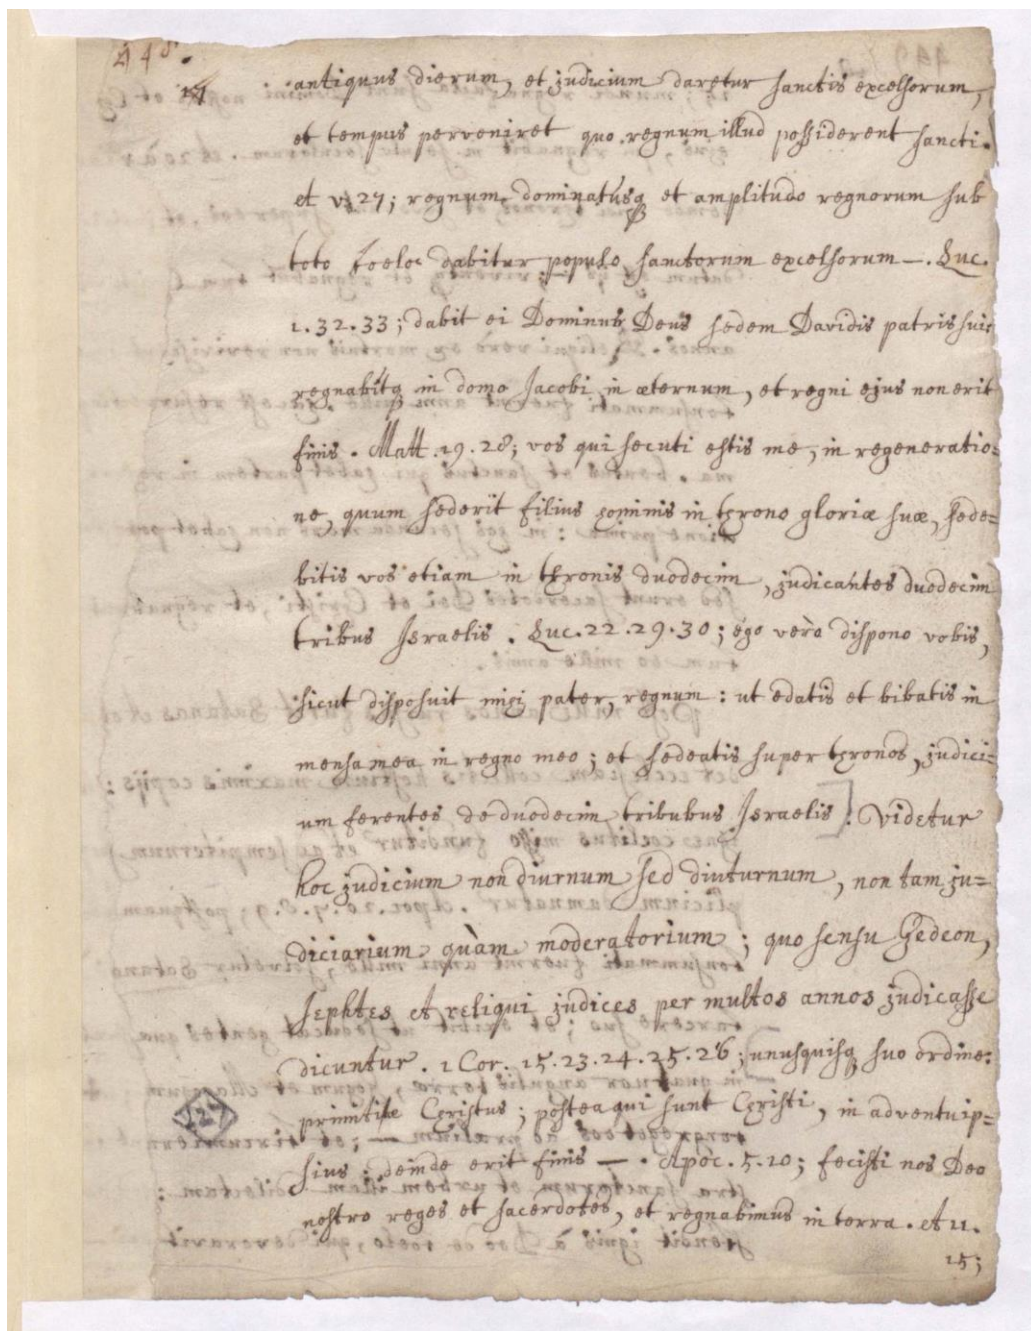 448
antiquus dierum, et judicium daretur sanctis excelsorum,
et tempus perveniret quo regnum illud possiderent sancti.
et v. 27; regnum dominatúsq et amplitudo regnorum sub
toto coelo dabitur populo sanctorum excelsorum —. Luc.
1.32.33; dabit ei Dominus Deus sedem Davidis patris sui:
regnabítq in domo Jacobi in æternum, et regni ejus non erit
finis. Matt. 19. 28; vos qui secuti estis me, in regeneratio=
ne, quum sederit filius hominis in throno gloriæ suæ, sede=
bitis vos etiam in thronis duodecim, judicantes duodecim
tribus Israelis. Luc. 22. 29. 30; ego verò dispono vobis,
sicut disposuit mihi pater, regnum: ut edatis et bibatis in
mensa mea in regno meo; et sedeatis super thronos, judici=
um ferentes de duodecim tribubus Israelis]. Videtur
hoc judicium non diurnum sed diuturnum, non tam ju=
diciarium quàm moderatorium; quo sensu Gedeon,
Jephtes et reliqui judices per multos annos judicasse
dicuntur. 1 Cor. 15. 23. 24. 25. 26; unusquisq suo ordine:
primitiæ Christus; postea qui sunt Christi, in adventu ip=
sius: deinde erit finis —. Apoc. 5. 10; fecisti nos Deo
nostro reges et sacerdotes, et regnabimus in terra. et 11.
15;